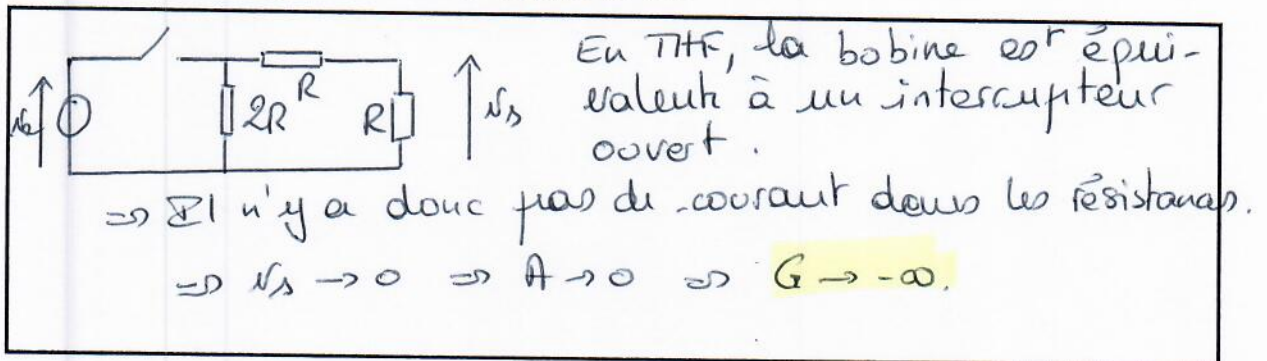 En THF, la bobine est équi-
valente à un interrupteur
ouvert.
Ve 2R R R Vs
=> Il n'y a donc pas de courant dans les résistances.
=> Vs → 0 => A → 0 => G → -∞.